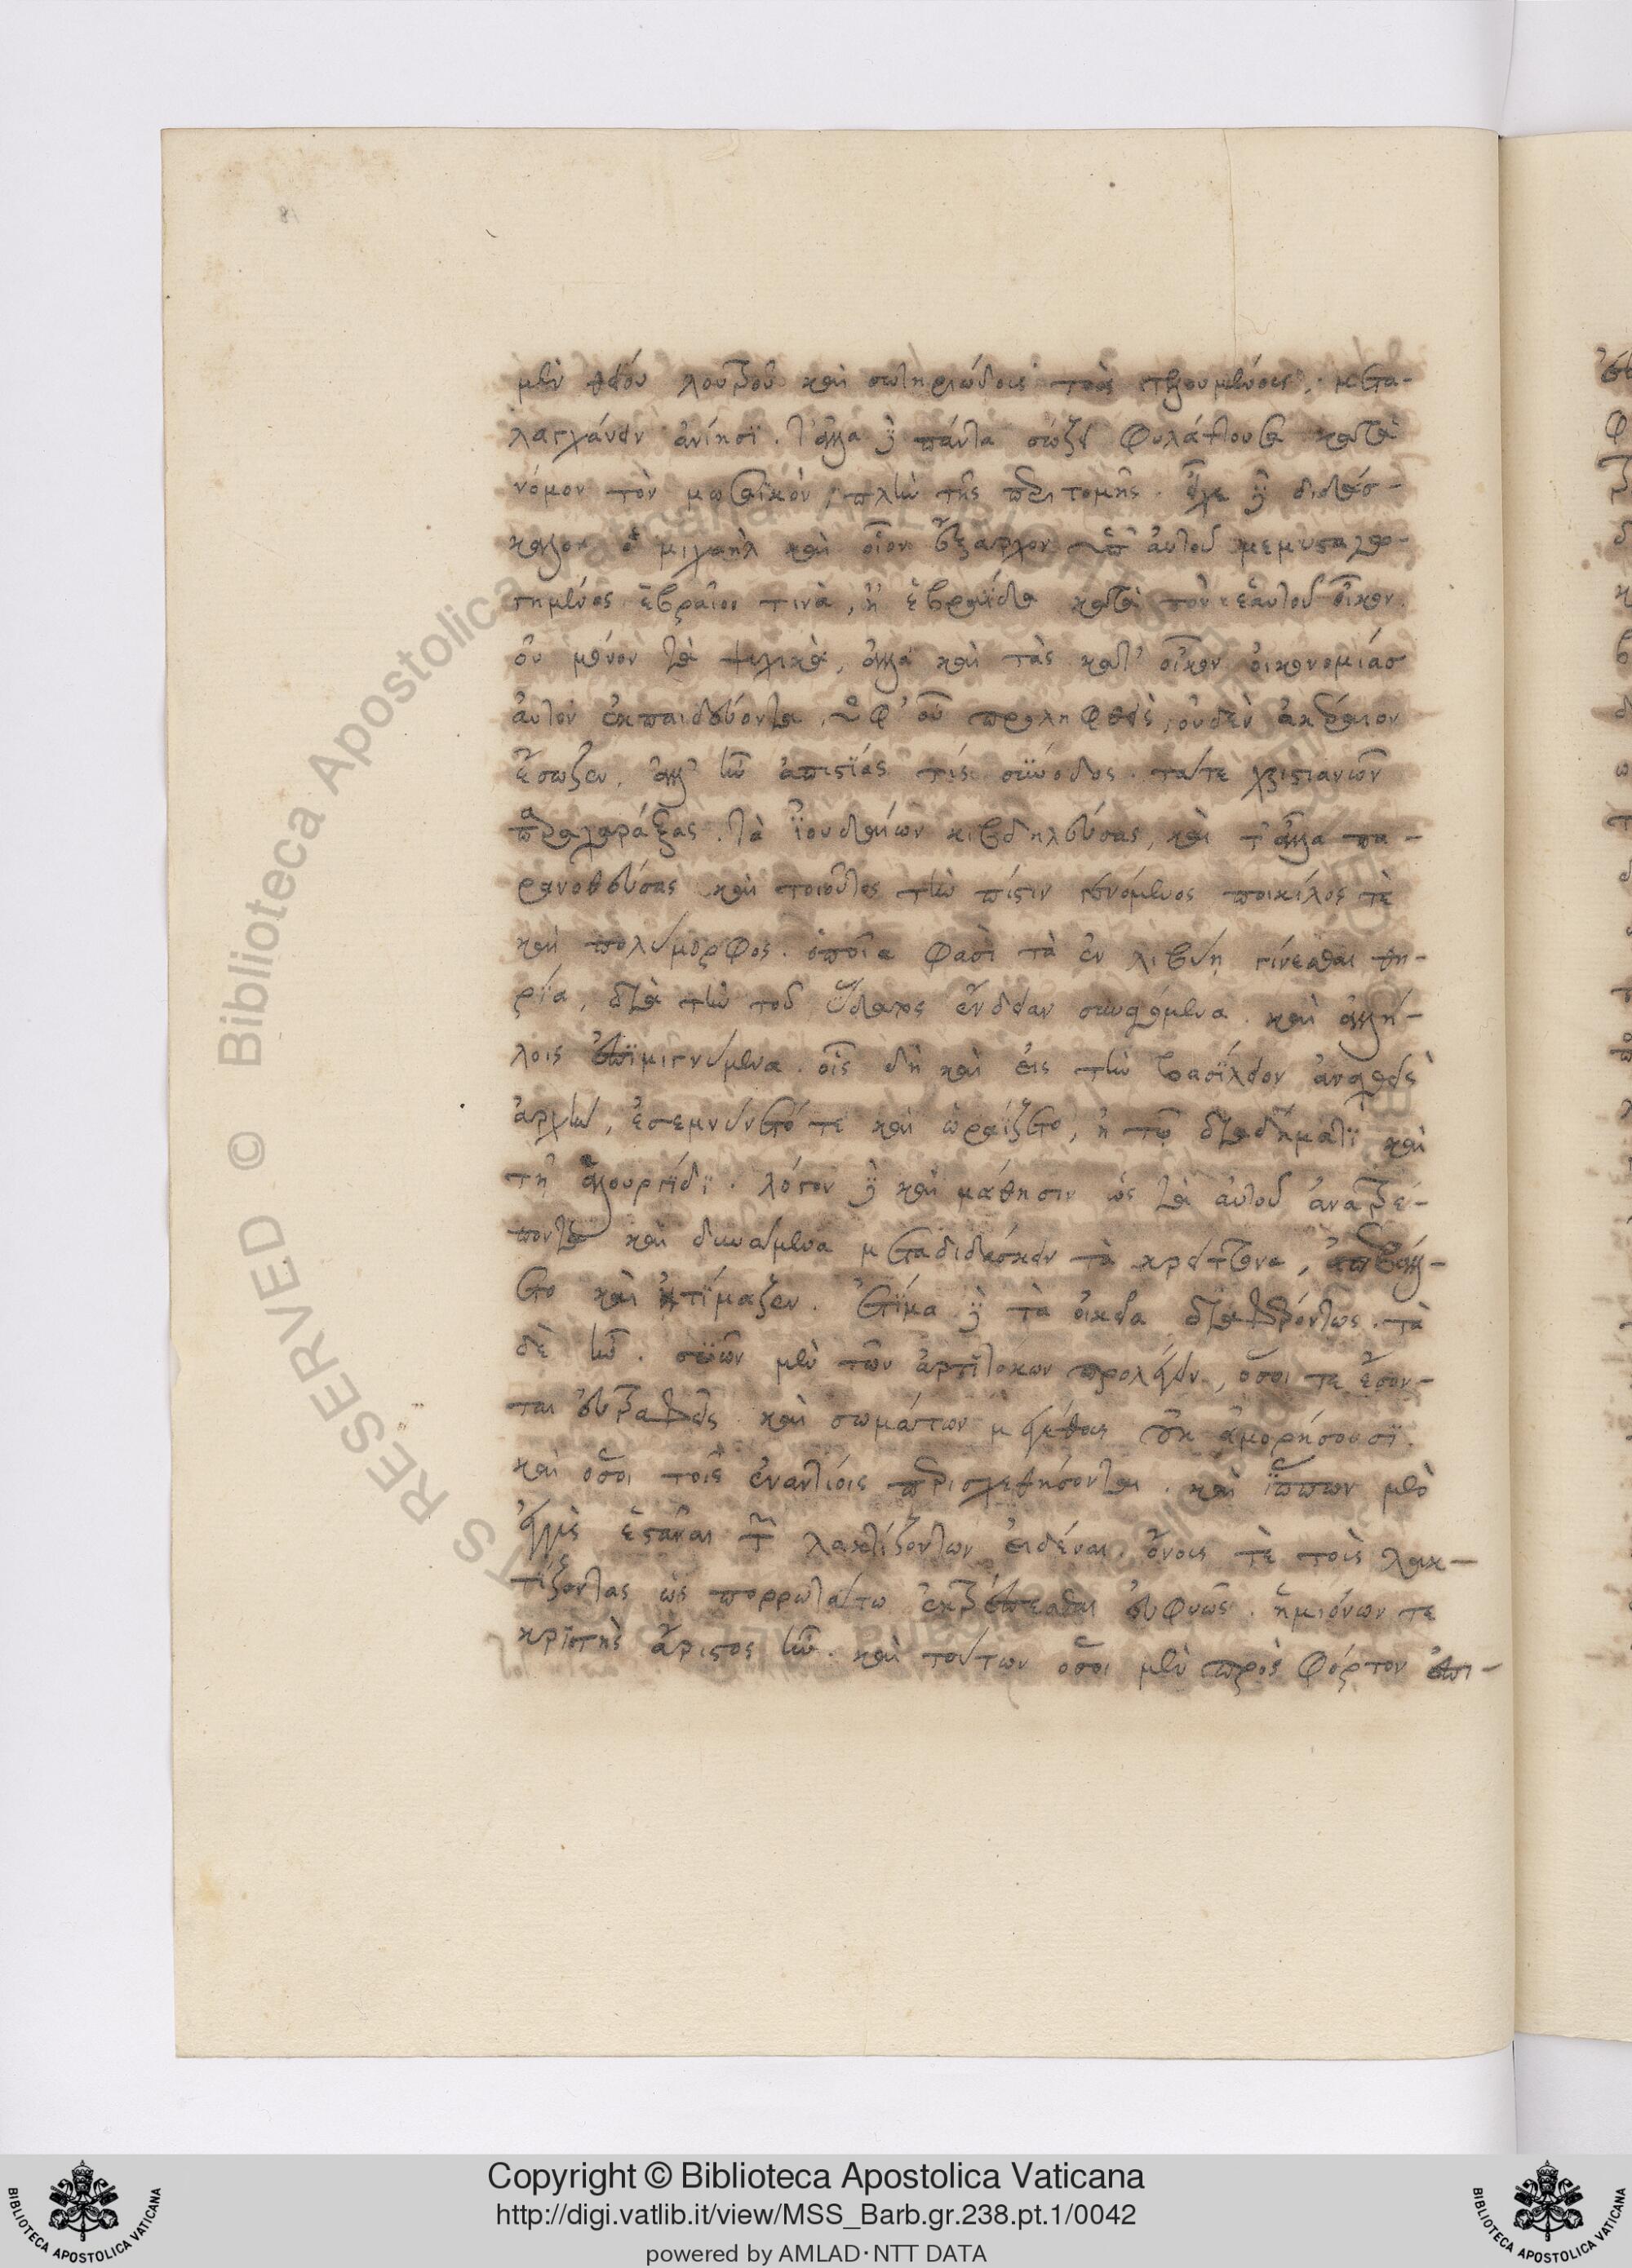 μὲν θείου λουτροῦ καὶ σωτηριώδους τοὺς τελουμένους, μετα-
λαγχάνειν ἀνίησϊ. τἄλλα δὲ πάντα σώζει φυλάττουσα κατὰ
νόμον τὸν μωσαϊκὸν, πλὴν τῆς περιτομῆς. ἔχει δὲ διδάσ-
καλον ὁ μιχαὴλ καὶ οἷον ἔξαρχον ὑπ' αὐτοῦ μεμυσταγω-
γημένος ἑβραῖόν τινὰ, ἢ ἑβραΐδα κατὰ τὸν ἑαυτοῦ οἶκον.
οὐ μόνον τὰ ψυχικὰ, ἀλλὰ καὶ τὰς κατ' οἶκον οἰκονομίας
αὐτὸν ἐκπαιδεύοντα, ὑφ' οὗ προληφθεὶς, οὐδὲν ἀκέραιον
ἔσωζεν. ἀλλ' ἦν ἀπιστίας τίς σύνοδος. τά τε χριστιανῶν
παραχαράξας. τὰ ἰουδαίων κιβδηλεύσας, καὶ τἄλλα πα-
ρανοθεύσας καὶ τοιοῦτος τὴν πίστιν γενόμενος ποικίλος τὲ
καὶ πολύμορφος. ὁποῖα φασὶ τὰ ἐν λιβύῃ γίνεσθαι θη-
ρία, διὰ τὴν τοῦ ὕδατος ἔνδειαν συναγόμενα. καὶ ἀλλή-
λοις ἐπϊμιγνύμενα. οἷς δὴ καὶ εἰς τὴν βασίλειον ἀναχθεὶς
ἀρχὴν, ἐσεμνύνετό τε καὶ ὡραΐζετο, ἢ τῷ διαδήματϊ καὶ
τῇ ἁλουργΐδϊ. λόγον δὲ καὶ μάθησιν ὡς τὰ αὐτοῦ ἀνατρέ-
ποντα καὶ δυνάμενα μεταδιδάσκειν τὰ κρείττονα, ἀπεβάλλ-
ετο καὶ ἠτίμαζεν. ἐτίμα δὲ τὰ οἰκεῖα διαφερόντως. τὰ
δὲ ἦν. συῶν μὲν τῶν ἀρτιτόκων προλέγειν, ὅσοι τε ἔσον-
ται εὐτραφεῖς. καὶ σωμάτων μεγέθους οὐκ ἀμοιρήσουσϊ.
καὶ ὅσοι τοῖς ἐναντίοις περισχεθήσονται. καὶ ἵππων μὲν
ἐγγὺς ἑστάναι τῶν λακτίζόντων εἰδέναι. ὄνους τὲ τοὺς λακ-
τίζοντας ὡς πορρωτάτω ἐκτρέπεσθαι εὐφυῶς. ἡμιόνων τε
κριτὴς ἄριστος ἦν. καὶ τούτων ὅσοι μὲν πρὸς φόρτον ἐπι-
Copyright © Biblioteca Apostolica Vaticana
http://digi.vatlib.it/view/MSS_Barb.gr.238.pt.1/0042
powered by AMLAD·NTT DATA